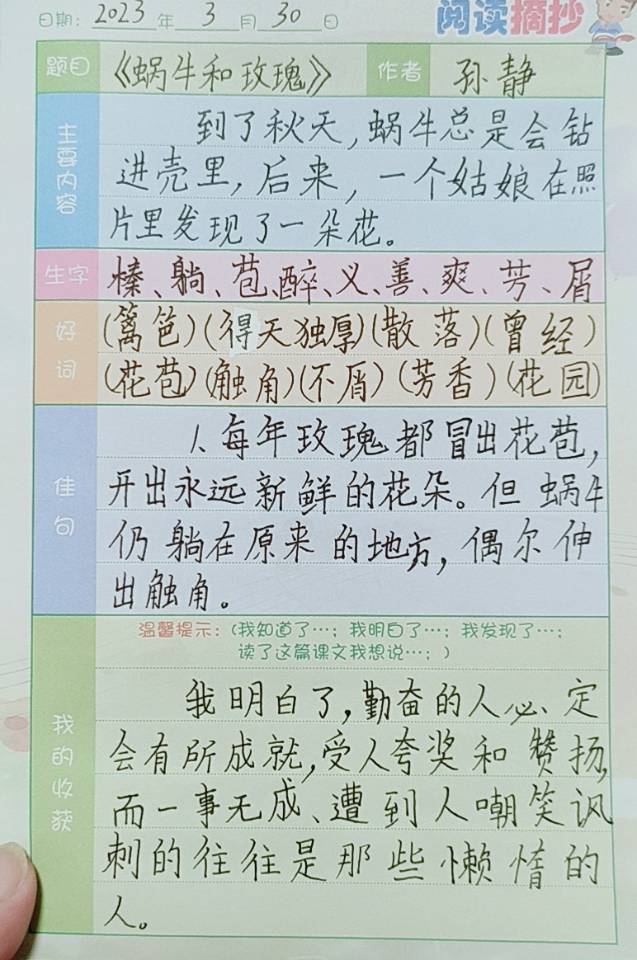 日期: 2023 年 3 月 30 日
阅读摘抄
题目 《蜗牛和玫瑰》 作者 孙静
主要内容
到了秋天，蜗牛总是会钻
进壳里，后来，一个姑娘在照
片里发现了一朵花。
生字 榛、躺、苞、醉、义、善、爽、芳、屑
好词
(篱笆)(得天独厚)(散落)(曾经)
(花苞)(触角)(不屑)(芳香)(花园)
佳句
1、每年玫瑰都冒出花苞，
开出永远新鲜的花朵。但蜗牛
仍躺在原来的地方，偶尔伸
出触角。
我的收获
温馨提示：(我知道了…；我明白了…；我发现了…；
读了这篇课文我想说…；)
我明白了，勤奋的人必定
会有所成就，受人夸奖和赞扬，
而一事无成、遭到人嘲笑讽
刺的往往是那些懒惰的
人。